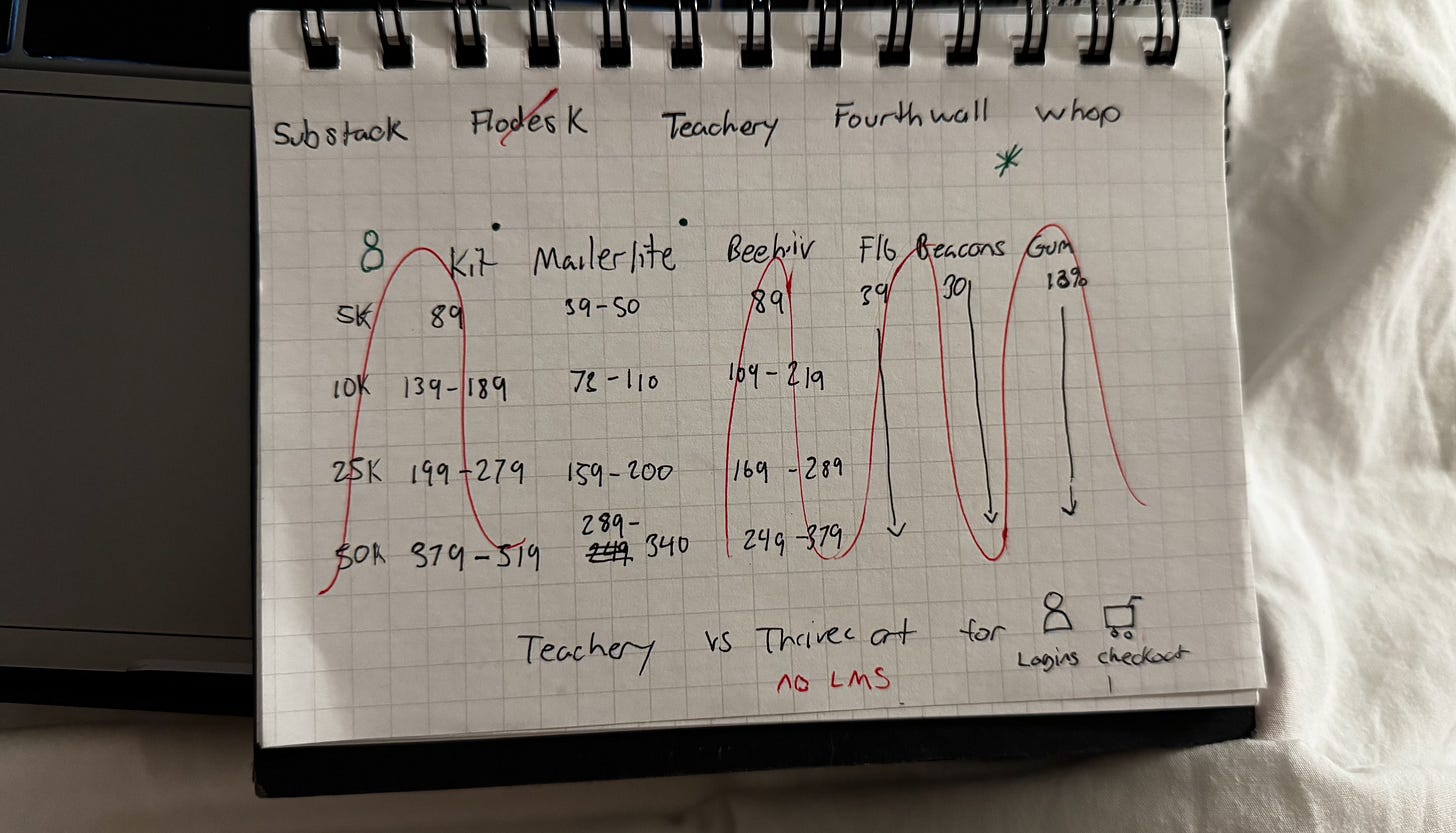 Substack Flodesk Teachery Fourthwall whop
*
8 Kit Mailerlite Beehiv F16 Beacons Gum
5K 89 39-50 89 39 30 13%
10K 139-189 78-110 169-219
25K 199-279 159-200 169-289
289-
50K 379-519 249 340 249-379
Teachery vs Thrivecart for
Logins checkout
no LMS